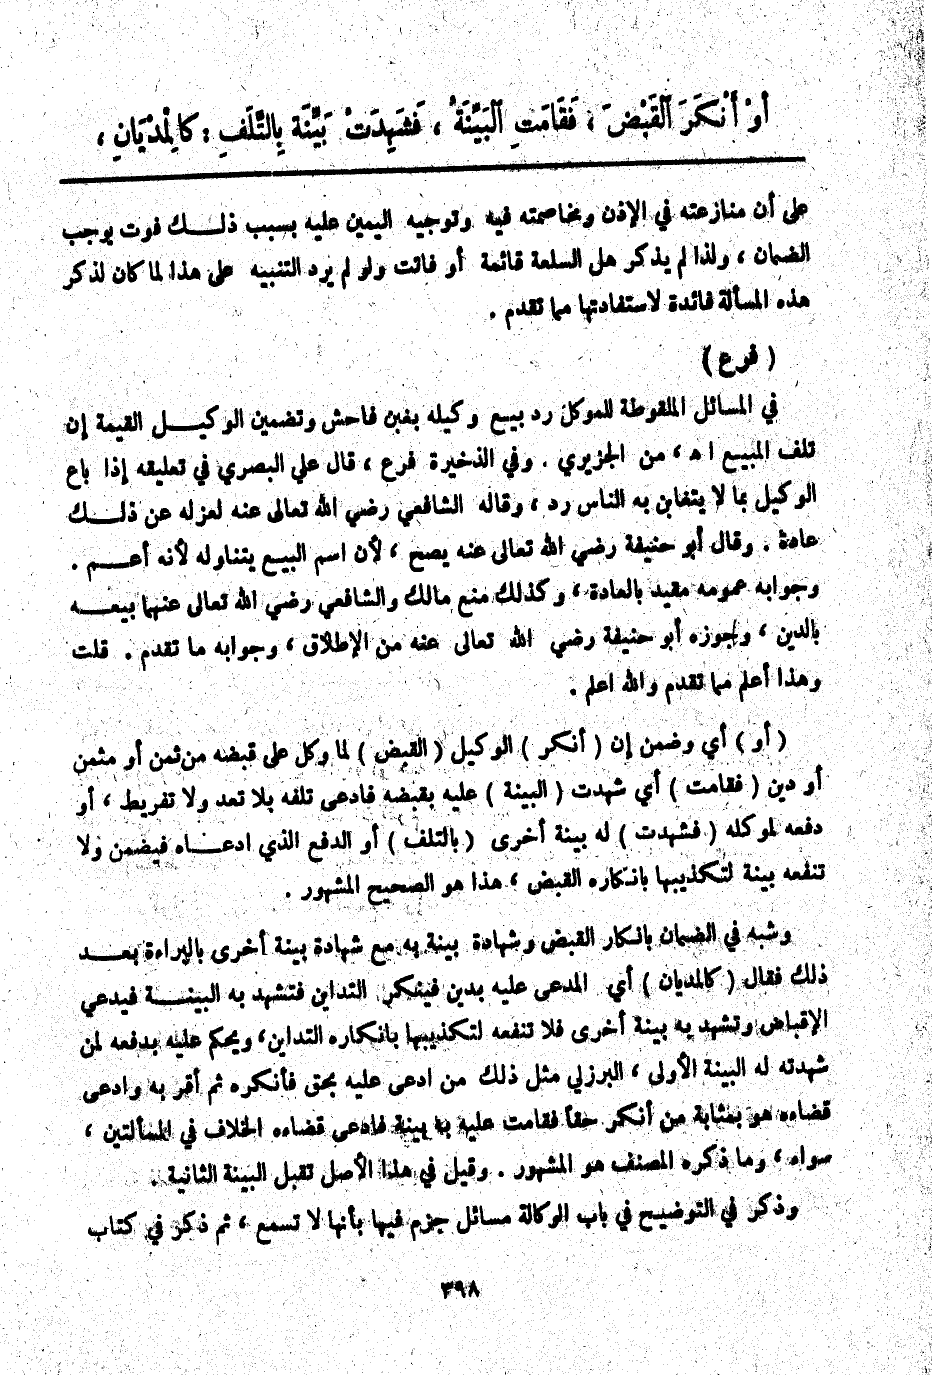 أَوْ أَنْكَرَ ٱلْقَبْضَ ، فَقَامَتِ ٱلْبَيِّنَةُ ، فَشَهِدَتْ بَيِّنَة بِالتَّلَفِ : كالْمِدْيَانِ ،
على أن منازعته في الإذن ومخاصمته فيه وتوجيه اليمين عليه بسبب ذلـك فوت يوجب
الضمان ، ولذا لم يذكر هل السلعة قائمة أو فاتت ولو لم يرد التنبيه على هذا لما كان لذكر
هذه المسألة فائدة لاستفادتها مما تقدم .
( فرع )
في المسائل الملقوطة للموكل رد بيع وكيله بغبن فاحش وتضمين الوكيـل القيمة إن
تلف المبيع ا ه ، من الجزيري . وفي الذخيرة فرع ، قال علي البصري في تعليقه إذا باع
الوكيل بما لا يتغابن به الناس رد ، وقاله الشافعي رضي الله تعالى عنه لعزله عن ذلـك
عادة . وقال أبو حنيفة رضي الله تعالى عنه يصح ، لأن اسم البيع يتناوله لأنه أعـم .
وجوابه عمومه مقيد بالعادة ، وكذلك منع مالك والشافعي رضي الله تعالى عنهما بيعـه
بالدين ، وجوزه أبو حنيفة رضي الله تعالى عنه من الإطلاق ، وجوابه ما تقدم . قلت
وهذا أعلم مما تقدم والله اعلم .
( أو ) أي وضمن إن ( أنكر ) الوكيل ( القبض ) لما وكل على قبضه من ثمن أو مثمن
أو دين ( فقامت ) أي شهدت ( البينة ) عليه بقبضه فادعى تلفه بلا تعد ولا تفريط ، أو
دفعه لموكله ( فشهدت ) له بينة أخرى ( بالتلف ) أو الدفع الذي ادعـاه فيضمن ولا
تنفعه بينة لتكذيبها بانكاره القبض ، هذا هو الصحيح المشهور .
وشبه في الضمان بانكار القبض وشهادة بينة به مع شهادة بينة أخرى بالبراءة بعـد
ذلك فقال ( كالمديان ) أي المدعى عليه بدين فينكر التداين فتشهد به البينـة فيدعي
الإقباض وتشهد به بينة أخرى فلا تنفعه لتكذيبها بانكاره التداين ، ويحكم عليه بدفعه لمن
شهدته له البينة الأولى ، البرزلي مثل ذلك من ادعى عليه بحق فأنكره ثم أقر به وادعى
قضاءه هو بمثابة من أنكر حقاً فقامت عليه به بينة فادعى قضاءه الخلاف في المسألتين ،
سواء ، وما ذكره المصنف هو المشهور . وقيل في هذا الأصل تقبل البينة الثانية .
وذكر في التوضيح في باب الوكالة مسائل جزم فيها بأنها لا تسمع ، ثم ذكر في كتاب
٣٩٨